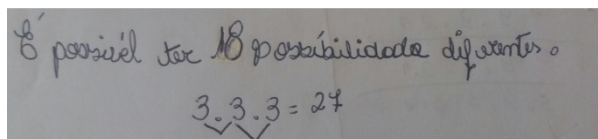 É possivél ter 18 possibilidade diferentes.
3.3.3 = 27